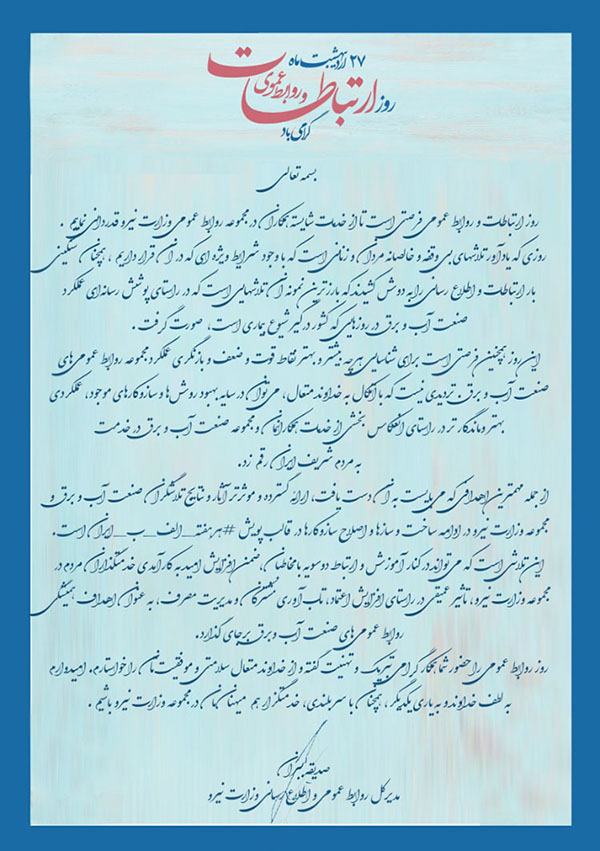 ۲۷ اردیبهشت ماه
روز ارتباطات
و روابط عمومی
گرامی باد
بسمه تعالی
روز ارتباطات و روابط عمومی فرصتی است تا از خدمات شایسته همکاران در مجموعه روابط عمومی وزارت نیرو قدردانی نماییم .
روزی که یادآور تلاشهای بی وقفه و خالصانه مردان و زنانی است که با وجود شرایط ویژه ای که در آن قرار داریم ، همچنان سنگینی
بار ارتباطات و اطلاع رسانی را به دوش کشیدند که بارزترین نمونه آن تلاشهایی است که در راستای پوشش رسانه ای عملکرد
صنعت آب و برق در روزهایی که کشور درگیر شیوع بیماری است، صورت گرفت .
این روز همچنین فرصتی است برای شناسایی هرچه بیشتر و بهتر نقاط قوت و ضعف و بازنگری عملکرد مجموعه روابط عمومی های
صنعت آب و برق. تردیدی نیست که با اتکال به خداوند متعال، می توان در سایه بهبود روش ها و سازوکارهای موجود، عملکردی
بهتر و ماندگارتر در راستای انعکاس بخشی از خدمات همکارانمان در مجموعه صنعت آب و برق در خدمت
به مردم شریف ایران رقم زد.
از جمله مهمترین اهدافی که می بایست به آن دست یافت، ارایه گسترده و موثرتر آثار و نتایج تلاشگران صنعت آب و برق و
مجموعه وزارت نیرو در ادامه ساخت و سازها و اصلاح سازوکارها در قالب پویش #هرهفته_الف_ب_ایران است.
این تلاشی است که می تواند در کنار آموزش و ارتباط دوسویه با مخاطبان، ضمن افزایش امید به کارآمدی خدمتگذاران مردم در
مجموعه وزارت نیرو، تاثیر عمیقی در راستای افزایش اعتماد، تاب آوری مشترکان و مدیریت مصرف، به عنوان اهداف همیشگی
روابط عمومی های صنعت آب و برق برجای گذارد.
روز روابط عمومی را حضور شما همکار گرامی تبریک و تهنیت گفته و از خداوند متعال سلامتی و موفقیت تان را خواستارم. امیدوارم
به لطف خداوند و به یاری یکدیگر ، همچنان با سربلندی، خدمتگزار هم میهنانمان در مجموعه وزارت نیرو باشیم .
صدیقه ببران
مدیرکل روابط عمومی و اطلاع رسانی وزارت نیرو